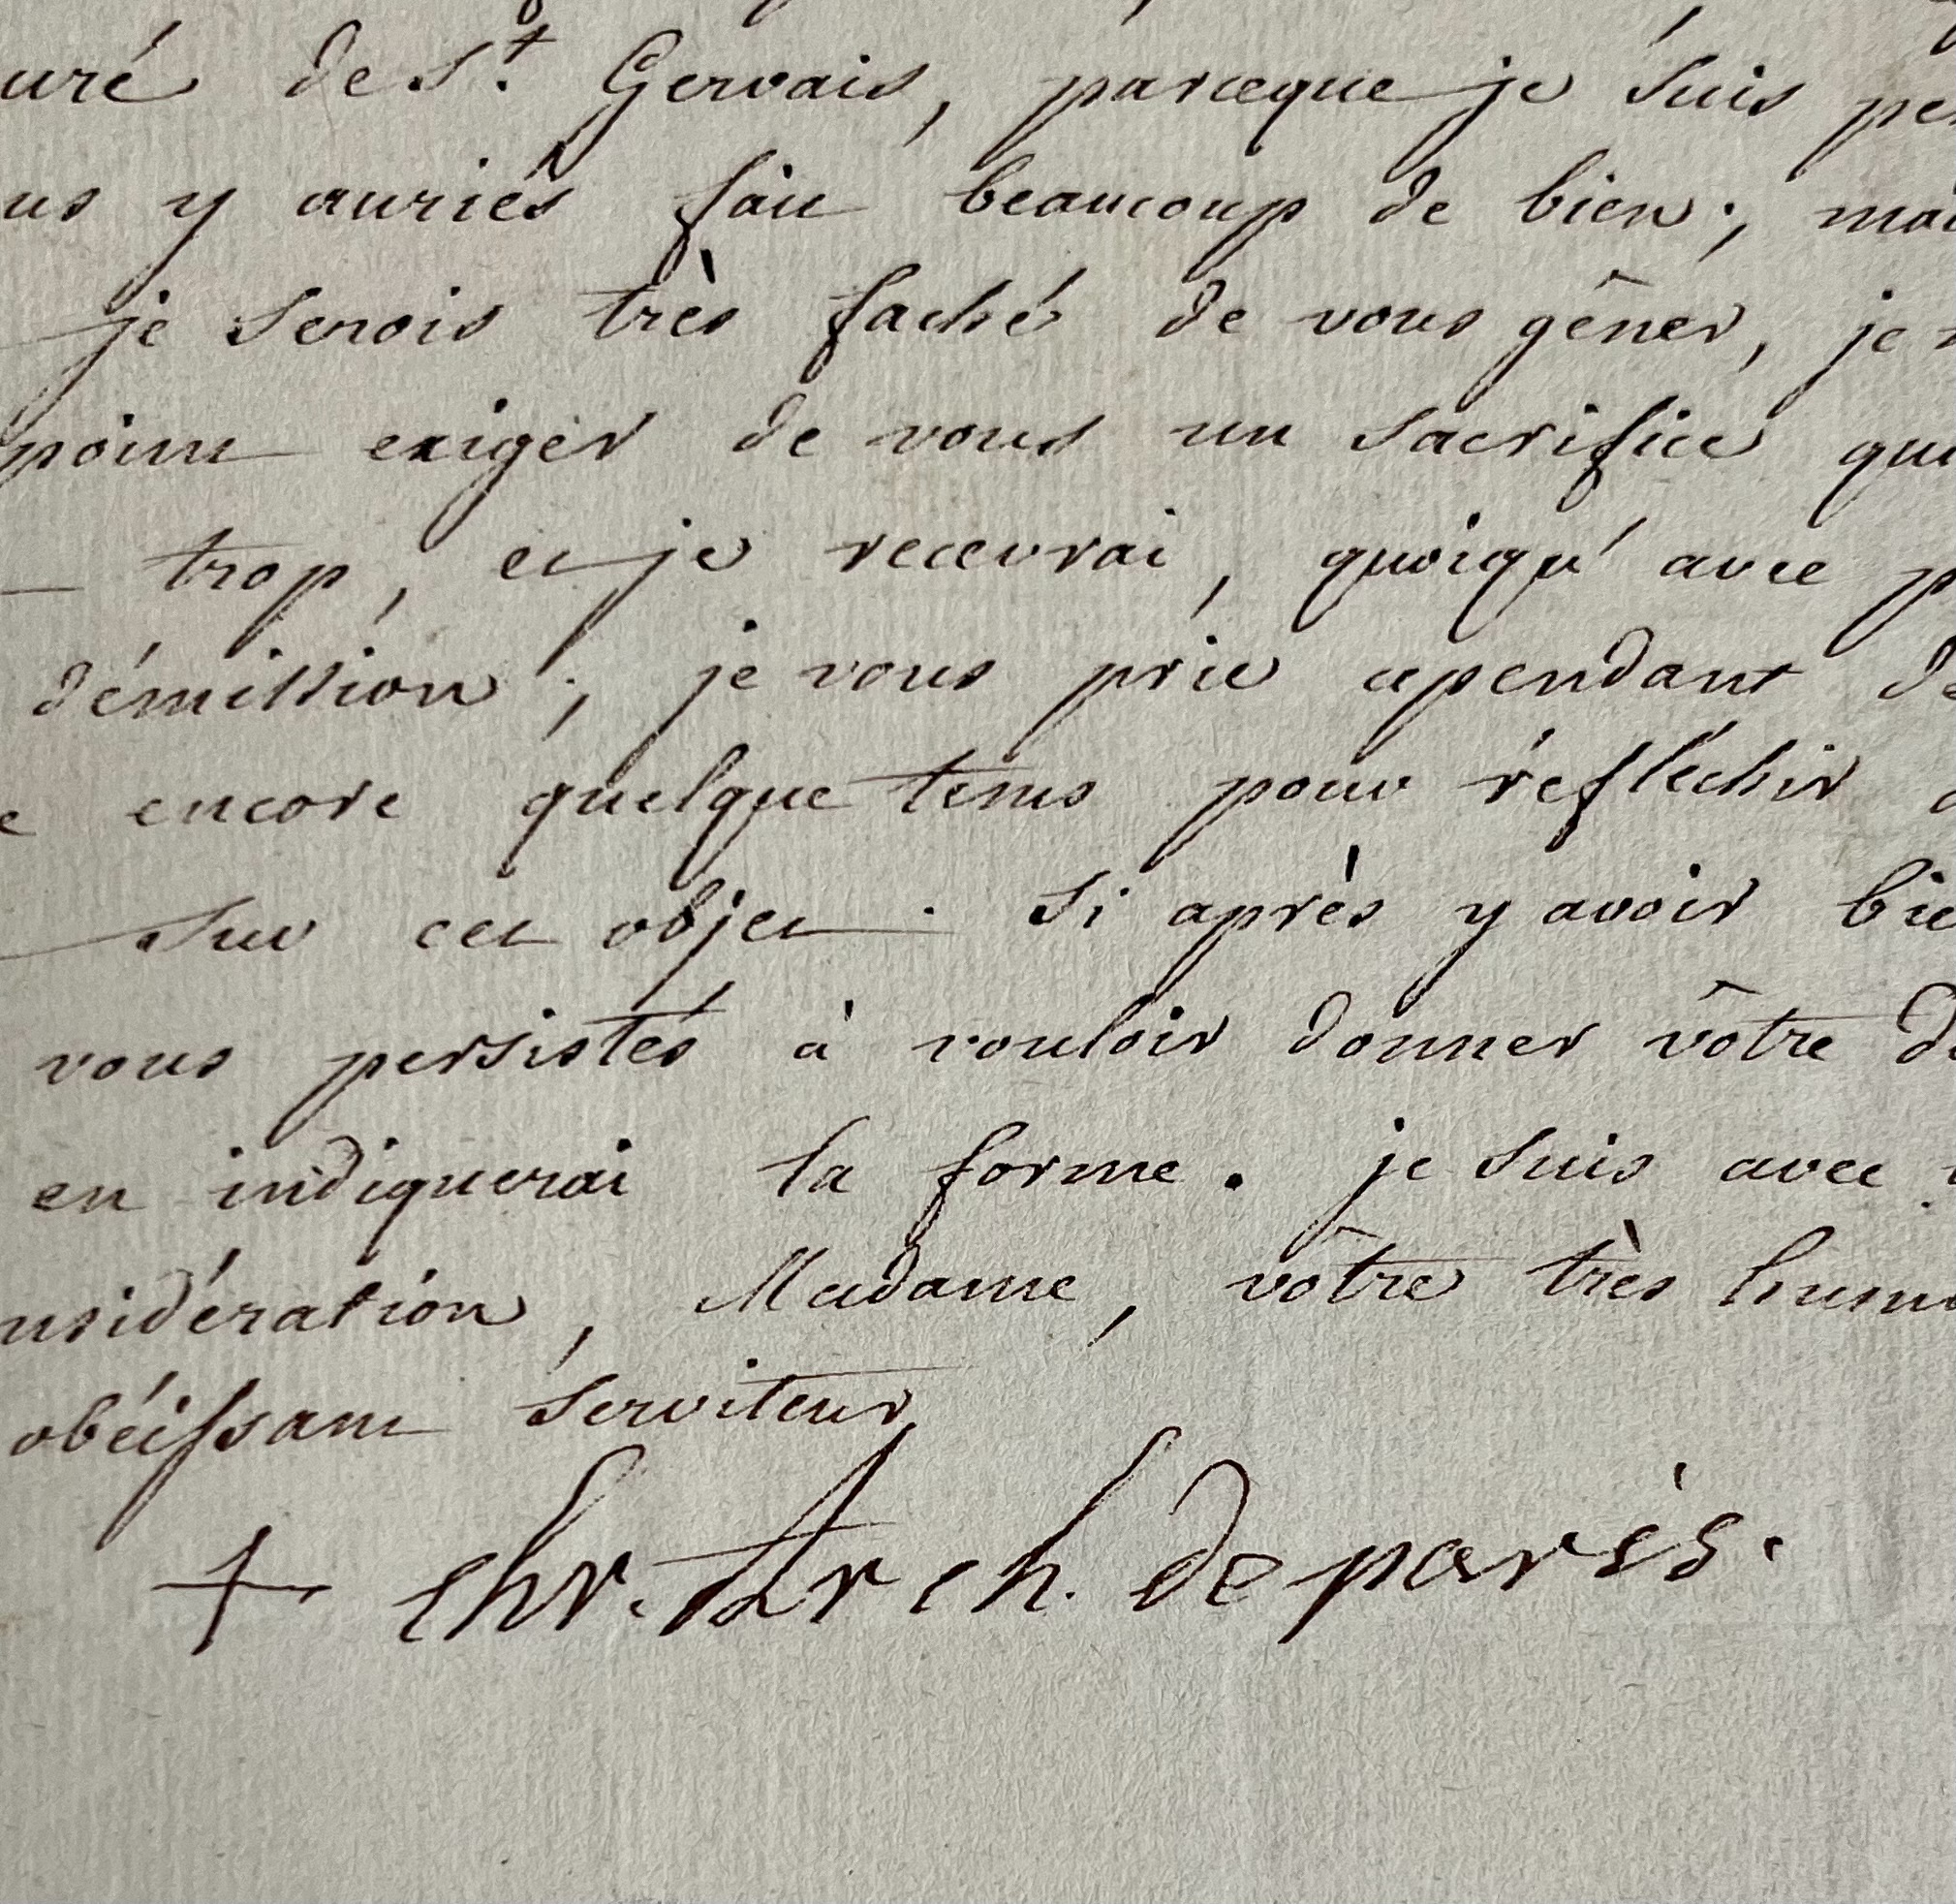 uré de St. Gervais, parceque je suis pe
us y auriés fait beaucoup de bien; mai
je serois très faché de vous gêner, je
point exiger de vous un sacrifice qui
trop, et je recevrai, quoiqu'avec p
démission; je vous prie cependant de
e encore quelque tems pour réfléchir
sur cet objet. Si après y avoir bie
vous persistés à vouloir donner vôtre dé
en indiquerai la forme. je suis avec
nsidération, Madame, vôtre très humb
obéissant serviteur
+ chr. Arch. de paris.